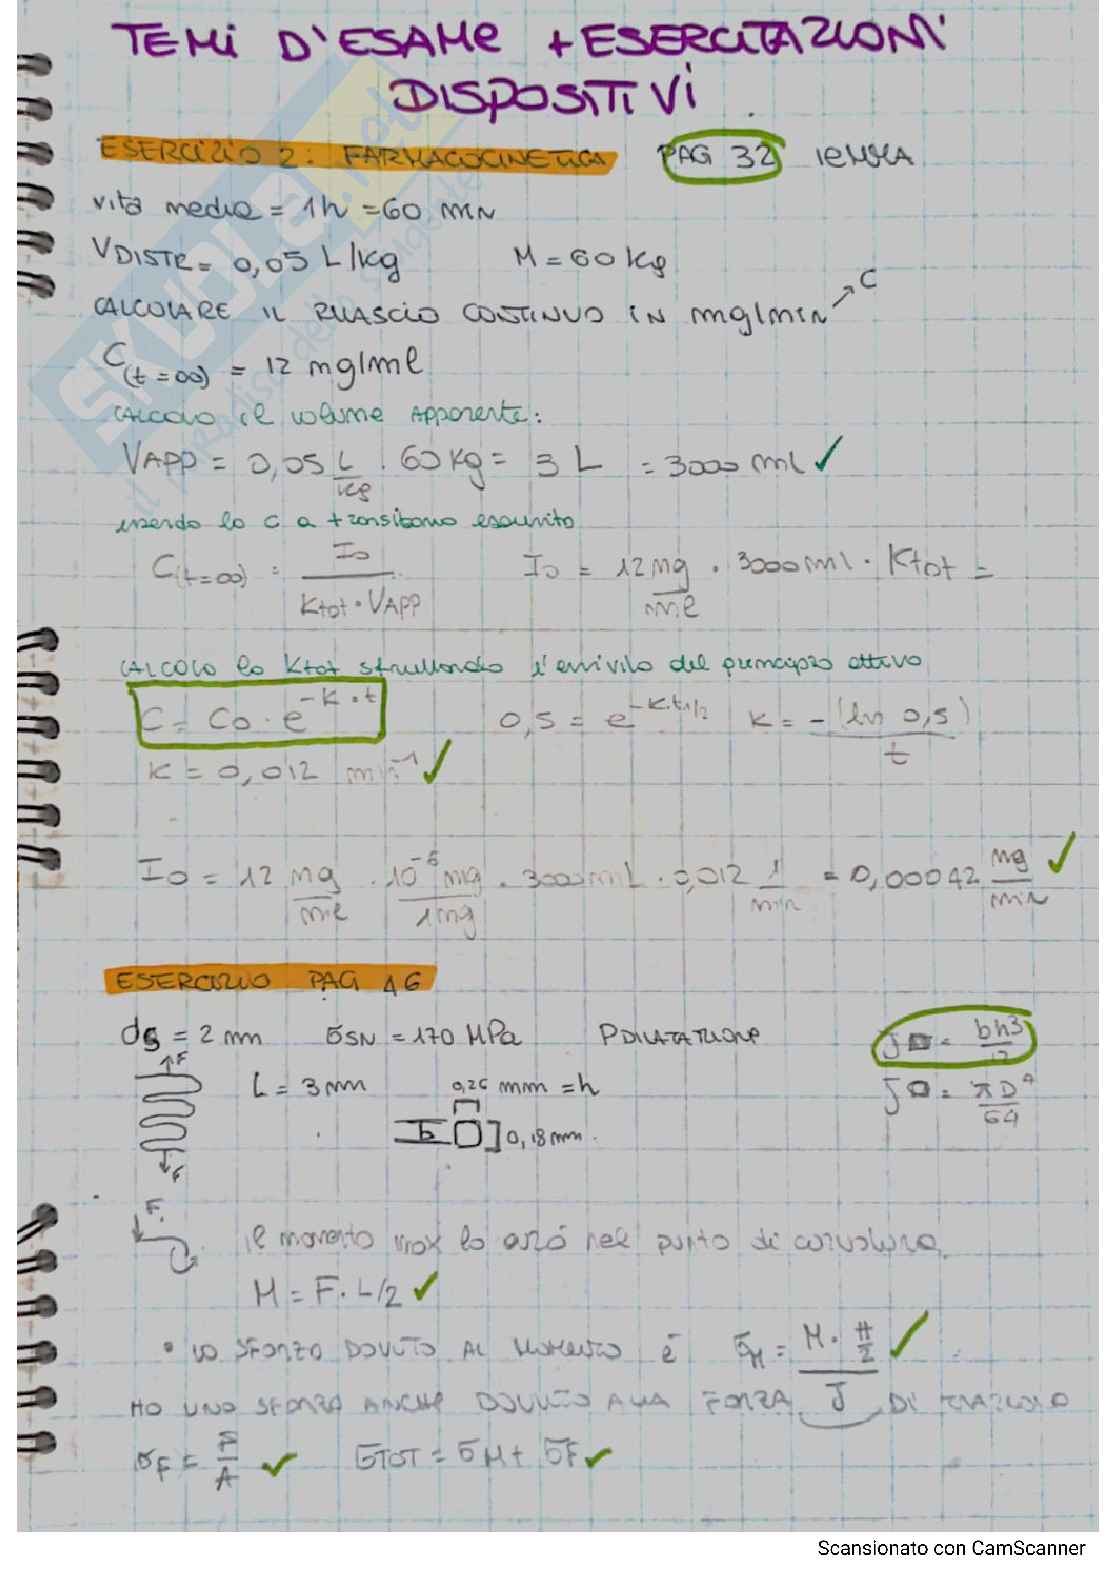 TEMI D'ESAME + ESERCITAZIONI
DISPOSITIVI
ESERCIZIO 2: FARMACOCINETICA PAG 32
vita media = 1h = 60 min
VDISTR = 0,05 L/kg M = 60 kg
CALCOLARE IL RILASCIO CONTINUO IN mg/min C
C(t=∞) = 12 mg/ml
CALCOLO il volume APPARENTE:
VAPP = 0,05 L/kg · 60 kg = 3 L = 3000 ml ✓
essendo la C a transitorio esaurito
C(t=∞) = I0 / Ktot · VAPP I0 = 12 mg/ml · 3000 ml · Ktot =
CALCOLO la Ktot sfruttando l'emivita del principio attivo
C = C0 · e^-K·t 0,5 = e^-K·t1/2 K = -(ln 0,5)/t
K = 0,012 min^-1 ✓
I0 = 12 mg/ml · 10^-6 mg/1mg · 3000 mL · 0,012 1/min = 0,00042 mg/min ✓
ESERCIZIO PAG 46
dS = 2 mm σSN = 170 MPa PDILATAZIONE J□ = bh³/12
F
L = 3 mm 0,26 mm = h J○ = πD⁴/64
b 0,18 mm
F
F
il momento max lo avrò nel punto di curvatura
M = F · L/2 ✓
• LO SFORZO DOVUTO AL MOMENTO È σM = M · H/2 / J ✓
HO UNO SFORZO ANCHE DOVUTO ALLA FORZA DI TRAZIONE
σF = F/A ✓ σTOT = σM + σF ✓
Scansionato con CamScanner
SKUOLA.net
il paradiso dello studente